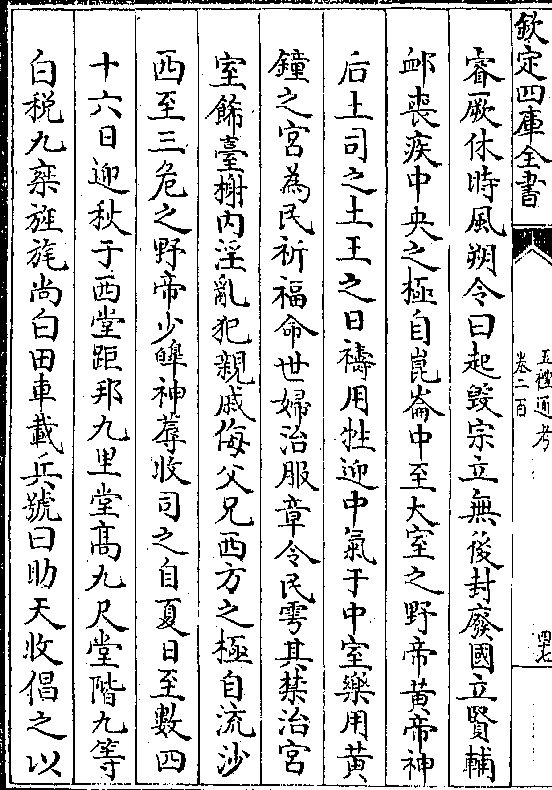 欽定四庫全書
五禮通考
卷二百
四七
睿厥休時風朔令曰起毀宗立無後封廢國立賢輔
䘏喪疾中央之極自崑崙中至大室之野帝黃帝神
后土司之土王之日禱用牲迎中氣于中室樂用黃
鐘之宮為民祈福命世婦治服章令民雩其禁治宮
室飾臺榭內淫亂犯親戚侮父兄西方之極自流沙
西至三危之野帝少皥神蓐收司之自夏日至數四
十六日迎秋于西堂距邦九里堂髙九尺堂階九等
白稅九乘旌旄尚白田車載兵號曰助天收倡之以